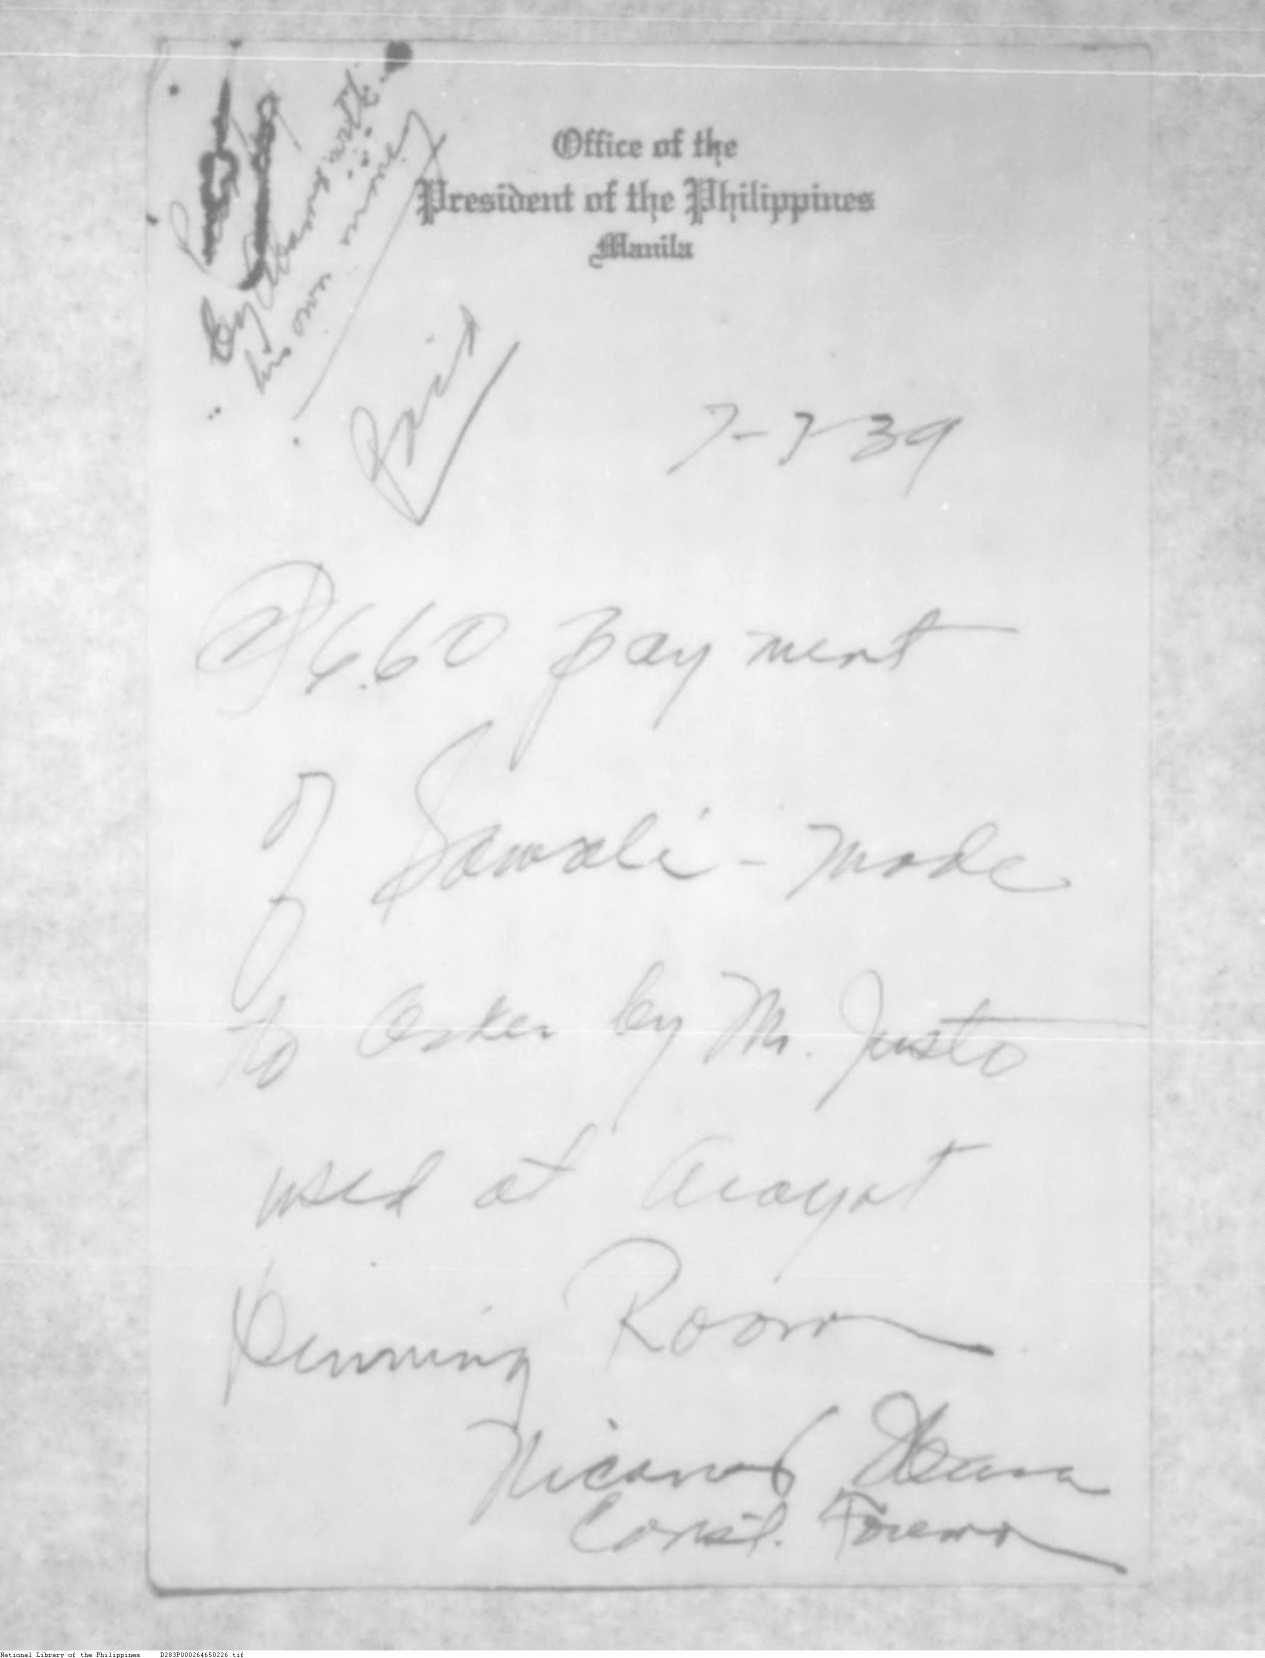 Office of the
President of the Philippines
Manila
by Abansi with
his own money
Paid
7-7-39
₱6.60 payment
of Sawali - made
to Osker by Mr. Justo
used at Arayat
Dinning Room
Nicanor
Const. Foreman
National Library of the Philippines D283P000264650226.tif